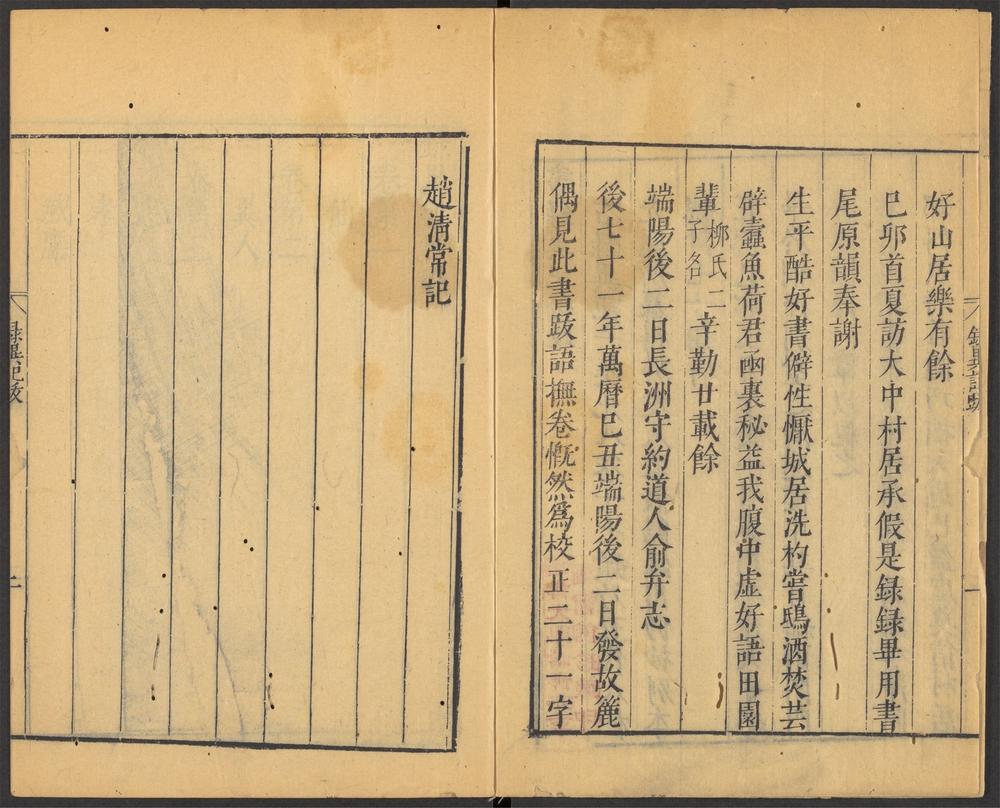 録異記跋
一
好山居樂有餘
巳卯首夏訪大中村居承假是録録畢用書
尾原韻奉謝
生平酷好書僻性懨城居洗杓嘗鴟酒焚芸
辟蠧魚荷君凾裏秘益我腹中虚好語田園
輩柳氏二子名辛勤廿載餘
端陽後二日長洲守約道人俞弁志
後七十一年萬曆巳丑端陽後二日發故簏
偶見此書跋語撫卷慨然爲校正二十一字
趙清常記
録異記跋
二